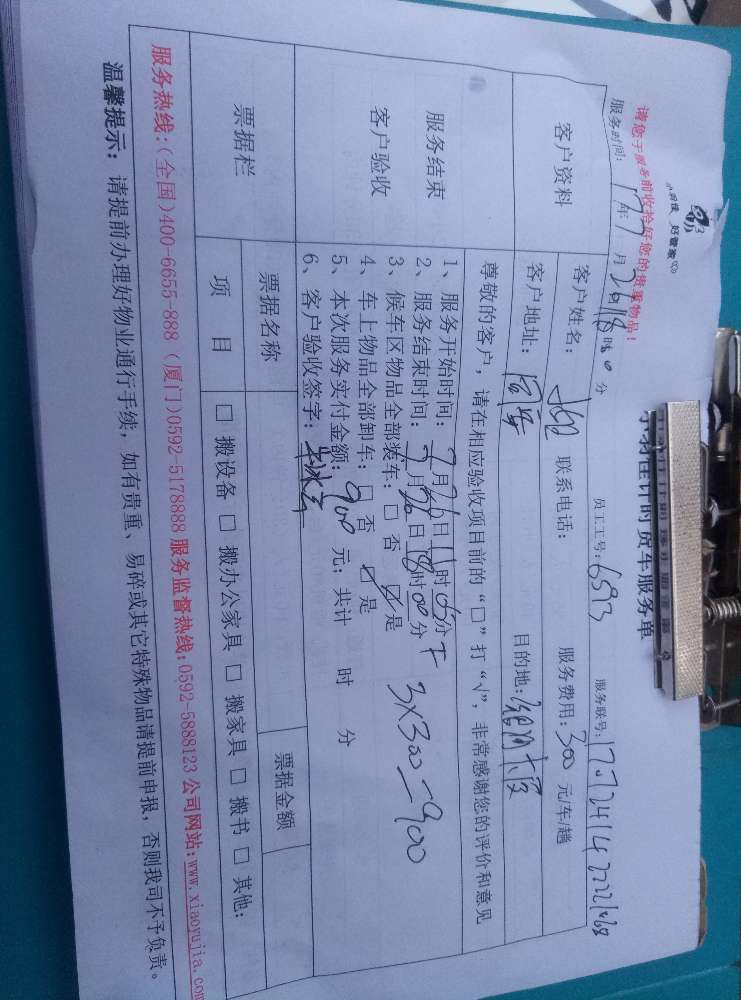 小羽佳 好管家
小羽佳计时货车服务单
请您于服务前收拾好您的贵重物品!
服务时间: 17年7月26日18时00分 员工工号: 6593 服务联号:
客户资料
客户姓名: 联系电话: 服务费用: 300元/车/趟
客户地址: 目的地:
尊敬的客户,请在相应验收项目前的“□”打“√”,非常感谢您的评价和意见
服务结束
客户验收
1、服务开始时间: 7月26日 时 分
2、服务结束时间: 7月26日18时00分
3、候车区物品全部装车: □ 否 ☑ 是
4、车上物品全部卸车: □ 否 ☑ 是
5、本次服务实付金额: 900 元; 共计 时 分
6、客户验收签字:
3×300=900
票据栏
票据名称 票据金额
项 目 □ 搬设备 □ 搬办公家具 □ 搬家具 □ 搬书 □ 其他:
服务热线:(全国)400-6655-888 (厦门)0592-5178888 服务监督热线:0592-5888123 公司网站:www.xiaoyujia.com
温馨提示: 请提前办理好物业通行手续,如有贵重、易碎或其它特殊物品请提前申报,否则我司不予负责。